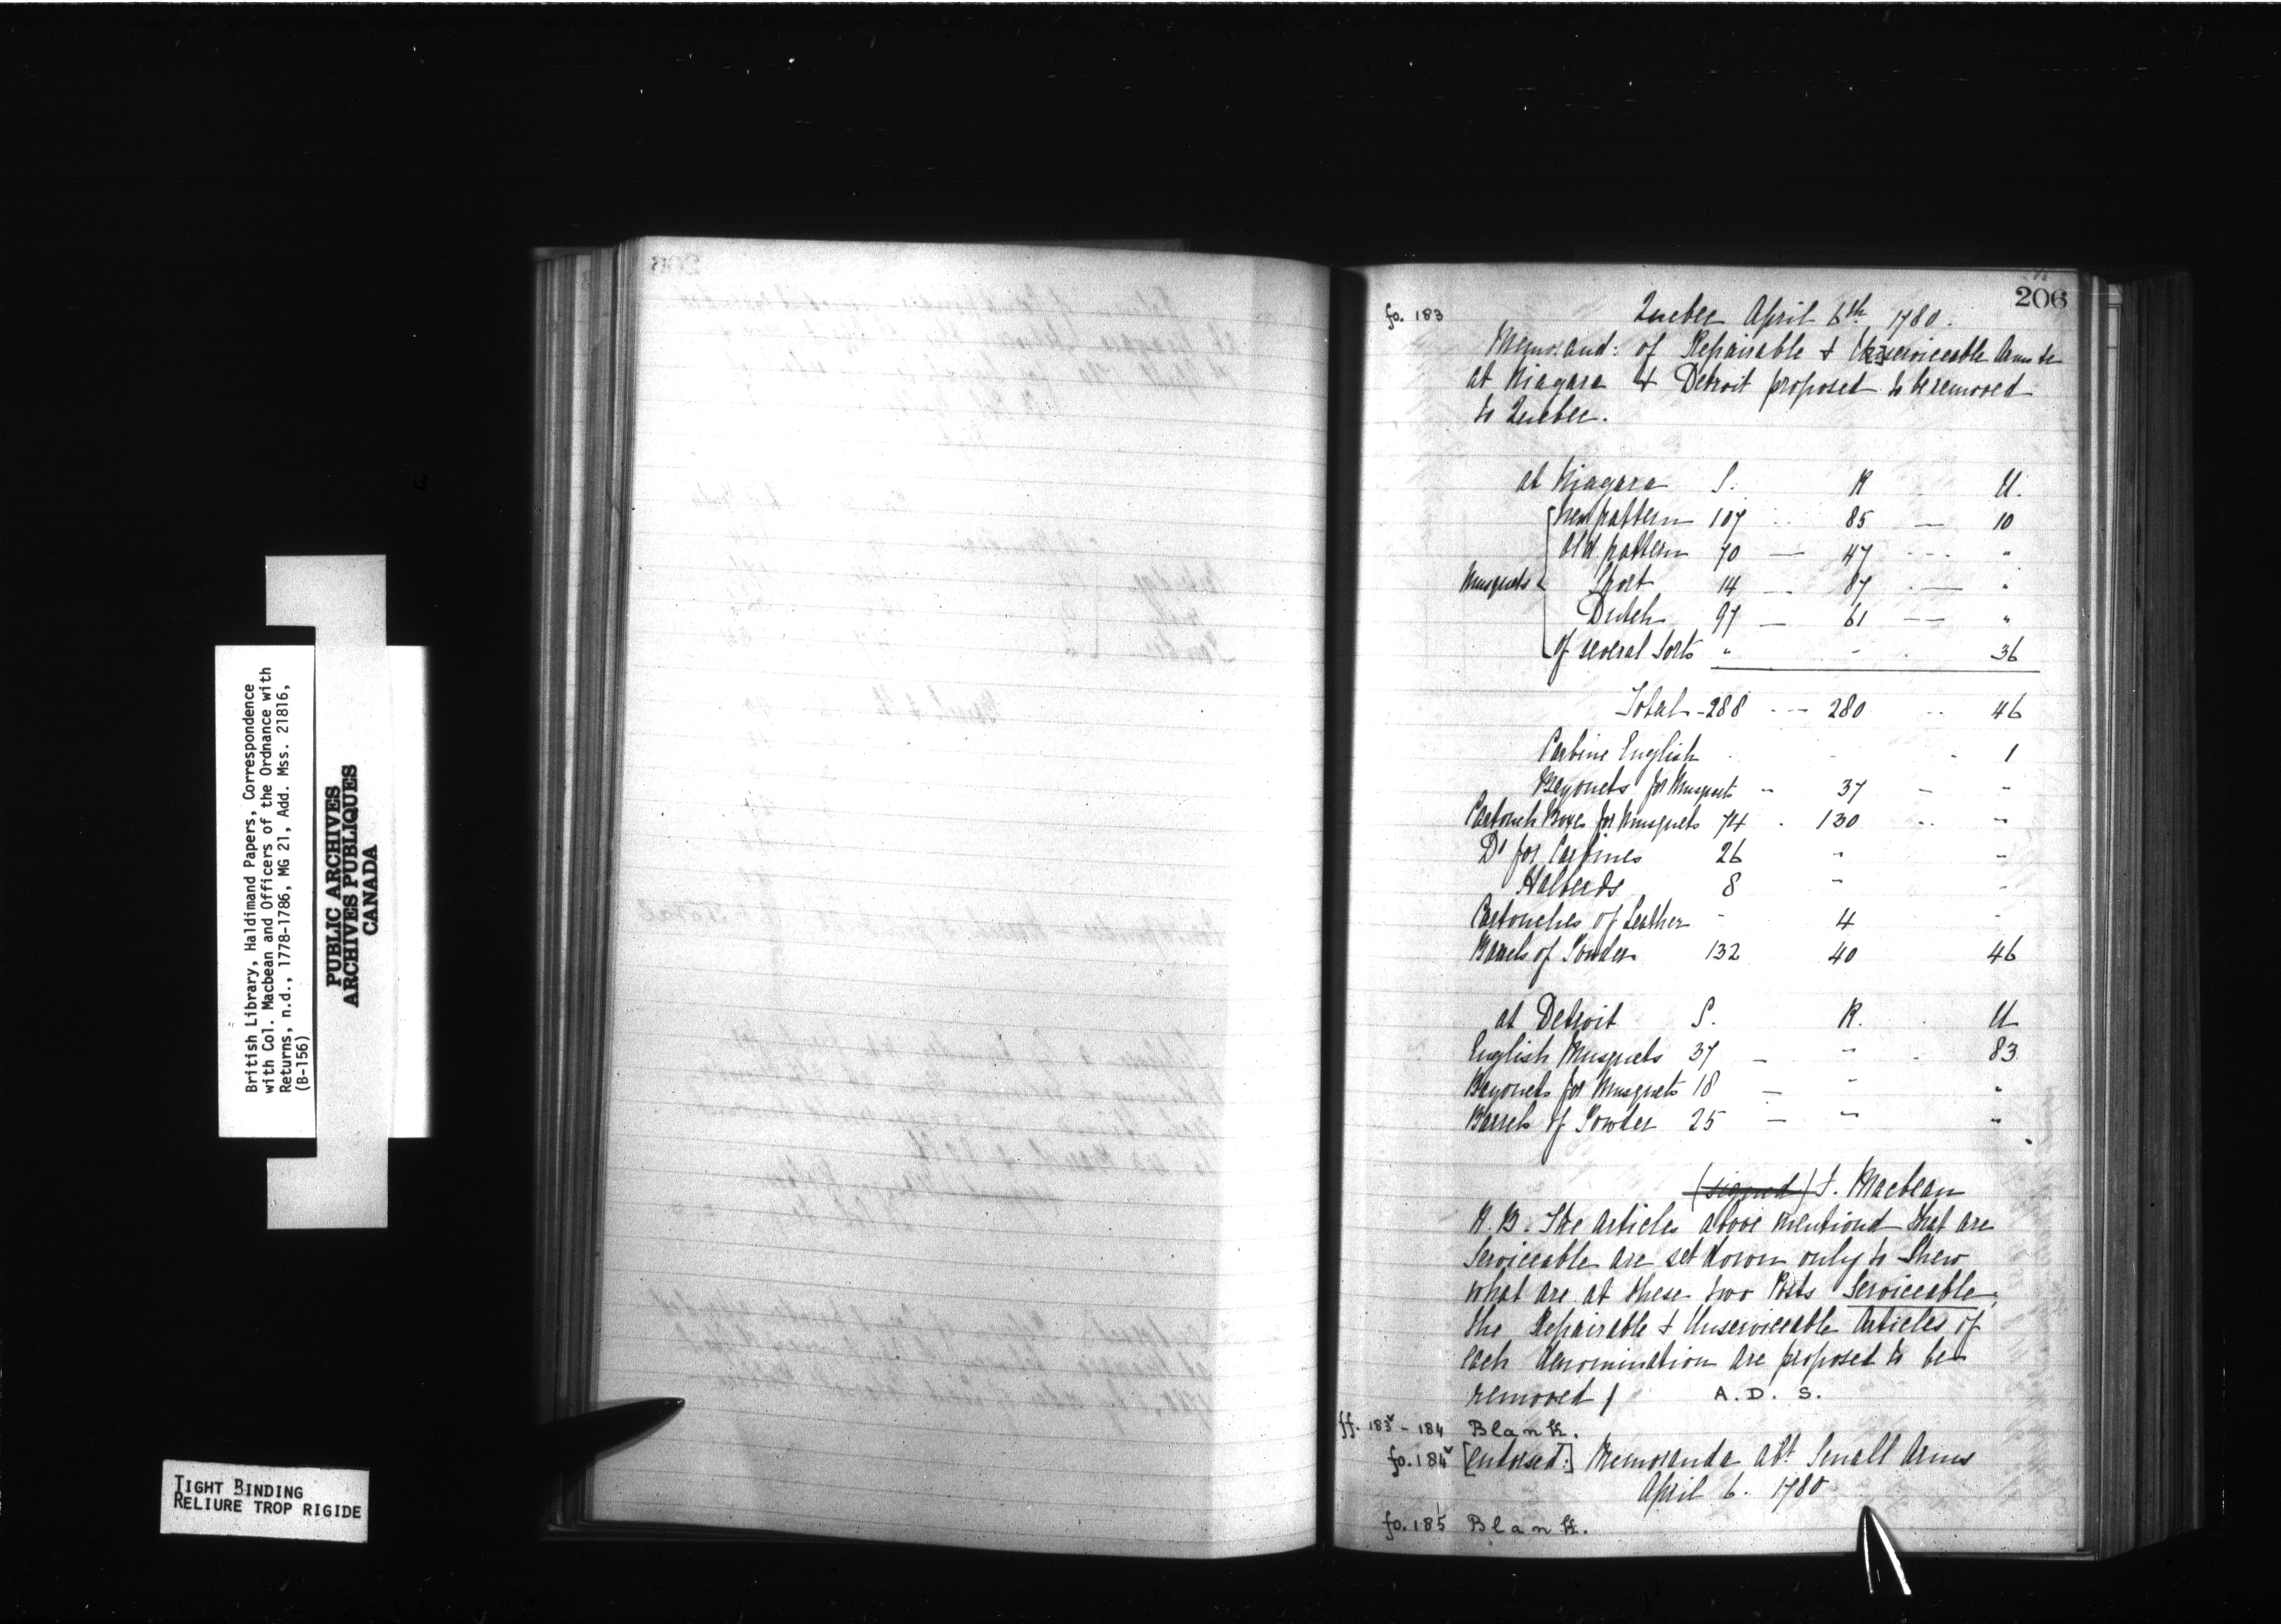 British Library, Haldimand Papers, Correspondence
with Col. Macbean and Officers of the Ordnance with
Returns, n.d., 1778-1786, MG 21, Add. Mss. 21816,
(B-156)
PUBLIC ARCHIVES
ARCHIVES PUBLIQUES
CANADA
TIGHT BINDING
RELIURE TROP RIGIDE
206
fo. 183 Quebec April 6th 1780.
Memorand: of Repairable & Unserviceable Arms &c
at Niagara & Detroit proposed to be removed
to Quebec.
at Niagara S. R U.
New pattern 107 85 — 10
Old pattern 70 — 47 --- "
Musquets Short 14 — 87 — "
Dutch 97 — 61 — "
Of several Sorts " - 36
Total - 288 --- 280 -- 46
Carbine English - - 1
Bayonets for Musquets - 37 - -
Cartouch Boxes for Musquets 74 - 130 -- -
Do for Carbines 26 " -
Halberds 8 " -
Cartouches of Leather - 4 -
Barrels of Powder 132 40 46
at Detroit S. R. U
English Musquets 37 - " - 83
Bayonets for Musquets 18 - " "
Barrels of Powder 25 - " "
(signed) F. Macbean
N.B. The Articles above mentiond that are
Serviceable are set down only to Shew
what are at these two Posts Serviceable,
the Repairable & Unserviceable Articles of
each denomination are proposed to be
removed / A. D. S.
ff. 183v - 184 Blank.
fo. 184v [endorsed:] Memoranda abt Small Arms
April 6. 1780
fo. 185 Blank.